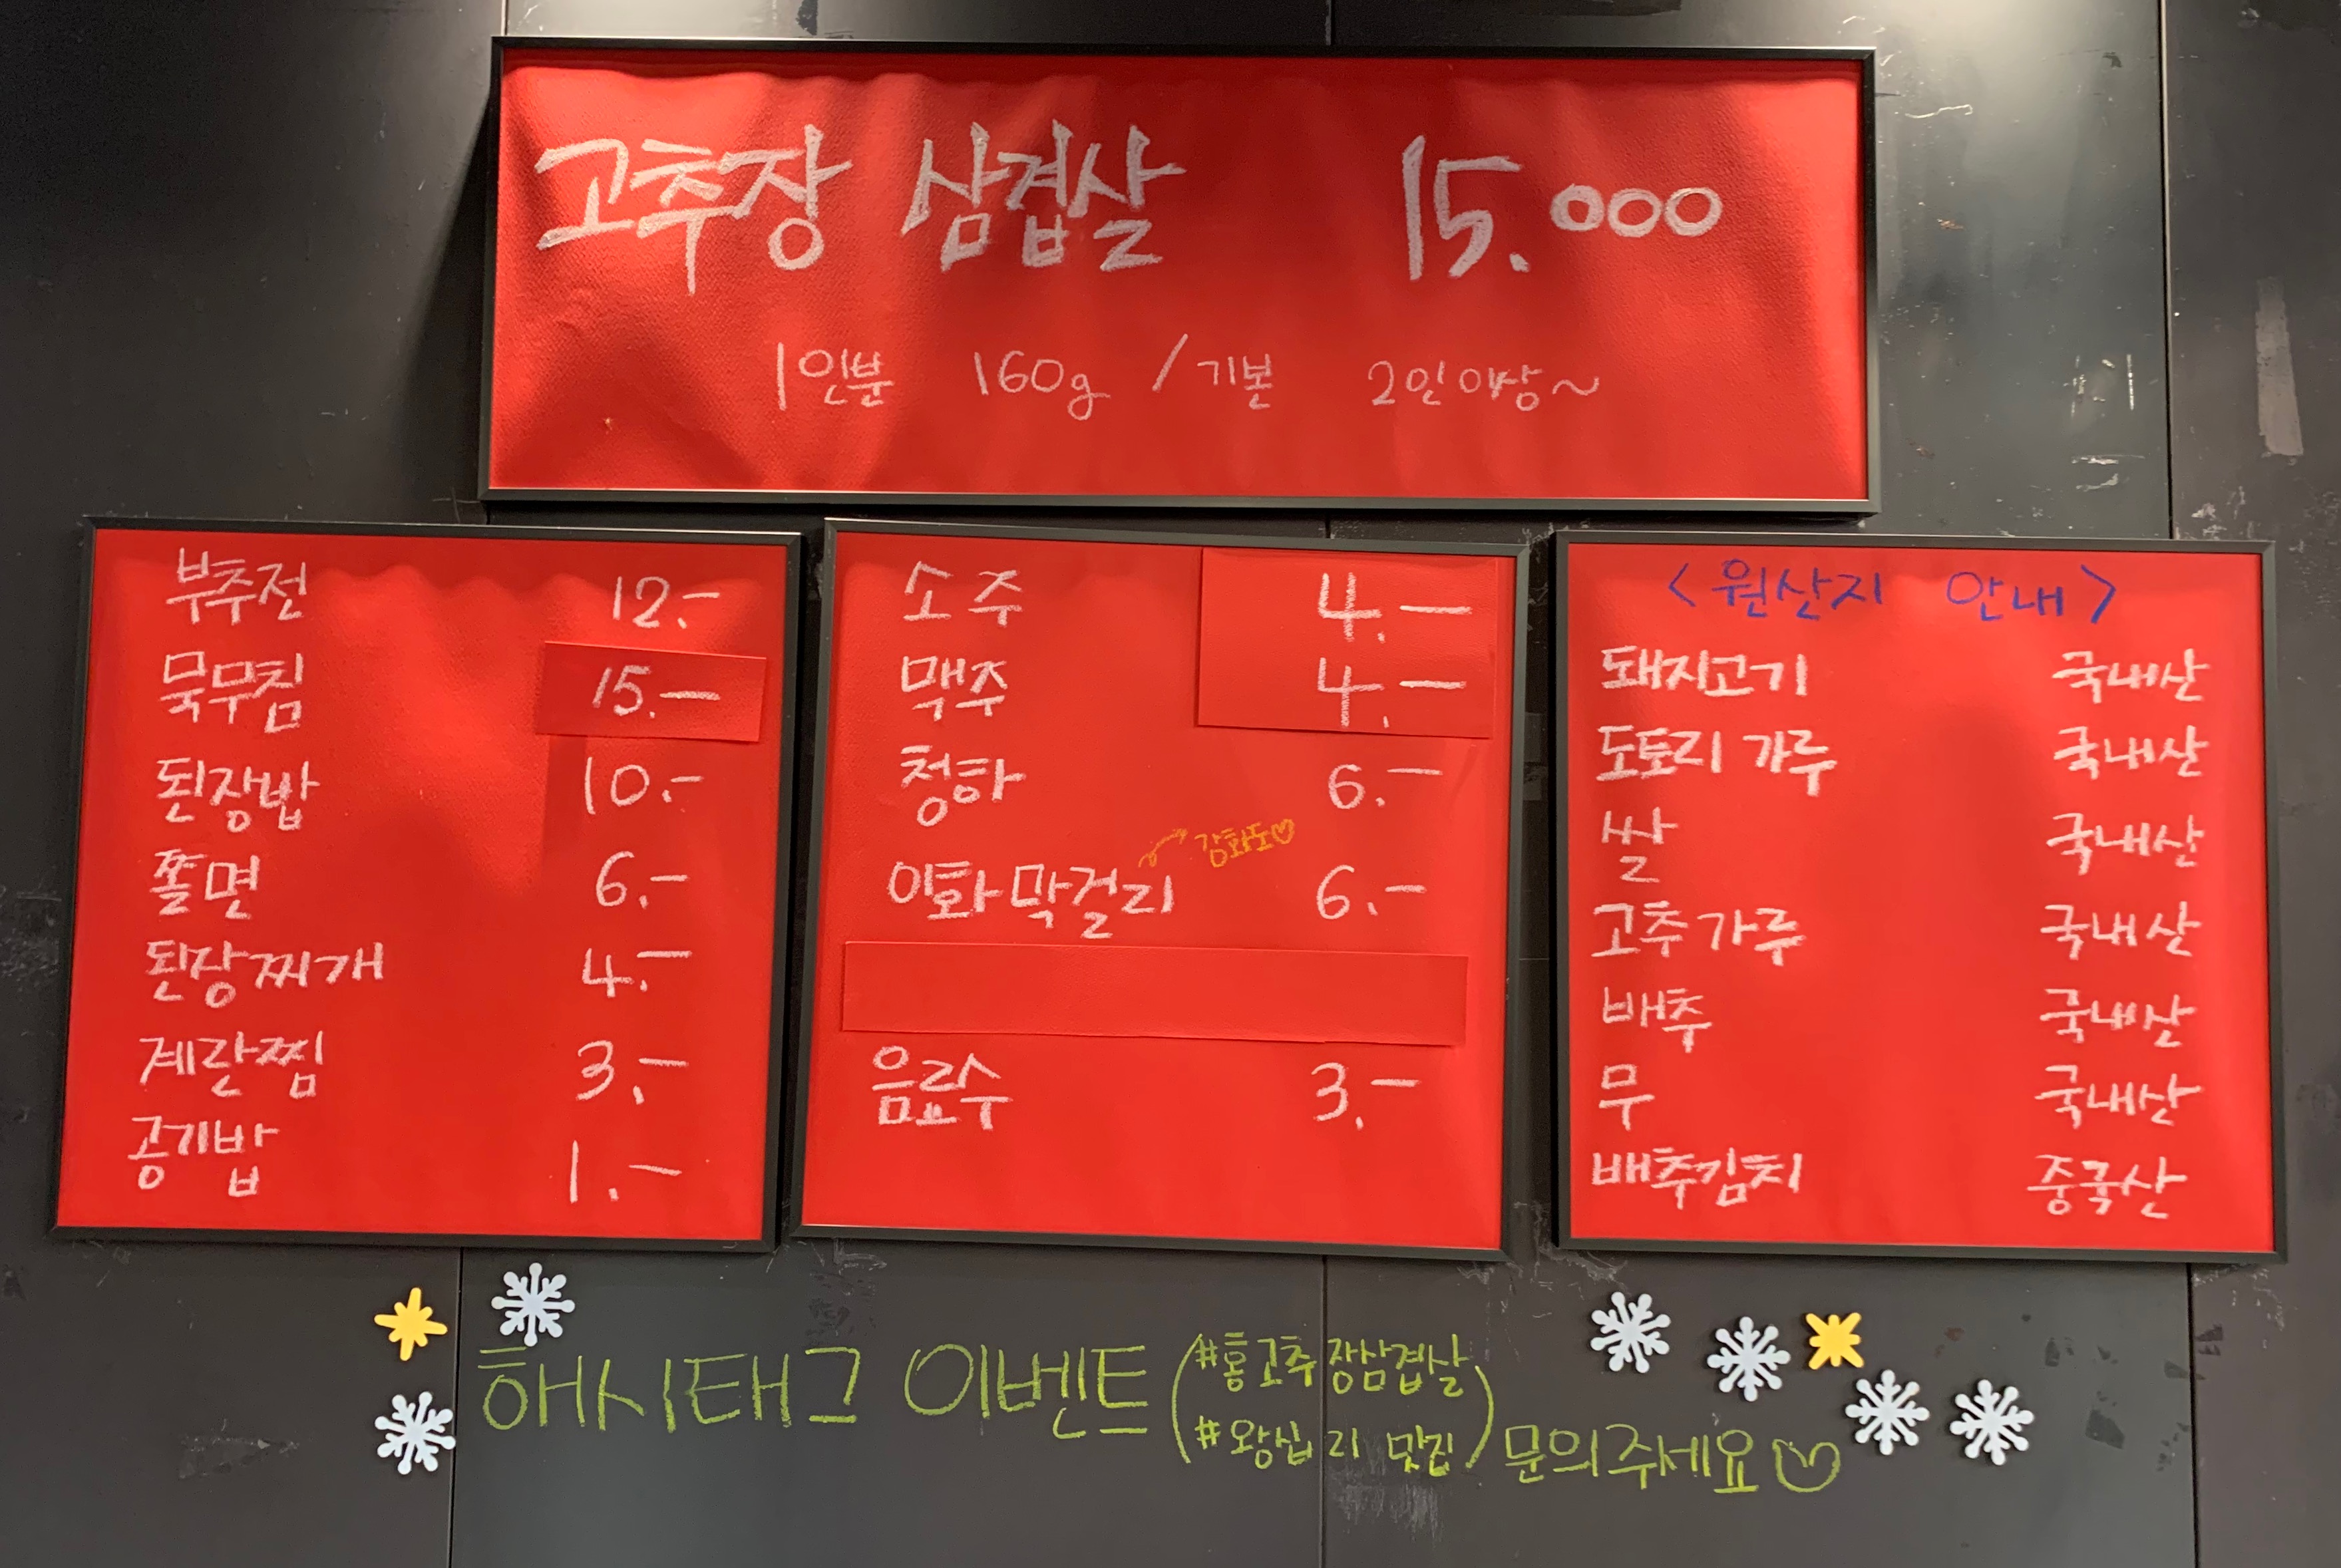 고추장 삼겹살 15.000
1인분 160g / 기본 2인이상~
부추전 12.-
묵무침 15.-
된장밥 10.-
쫄면 6.-
된장찌개 4.-
계란찜 3.-
공기밥 1.-
소주 4.-
맥주 4.-
청하 6.-
강화도♡
이화 막걸리 6.-
음료수 3.-
<원산지 안내>
돼지고기 국내산
도토리 가루 국내산
쌀 국내산
고추가루 국내산
배추 국내산
무 국내산
배추김치 중국산
해시태그 이벤트 (#홍고추장삼겹살
#왕십리 맛집) 문의주세요♡